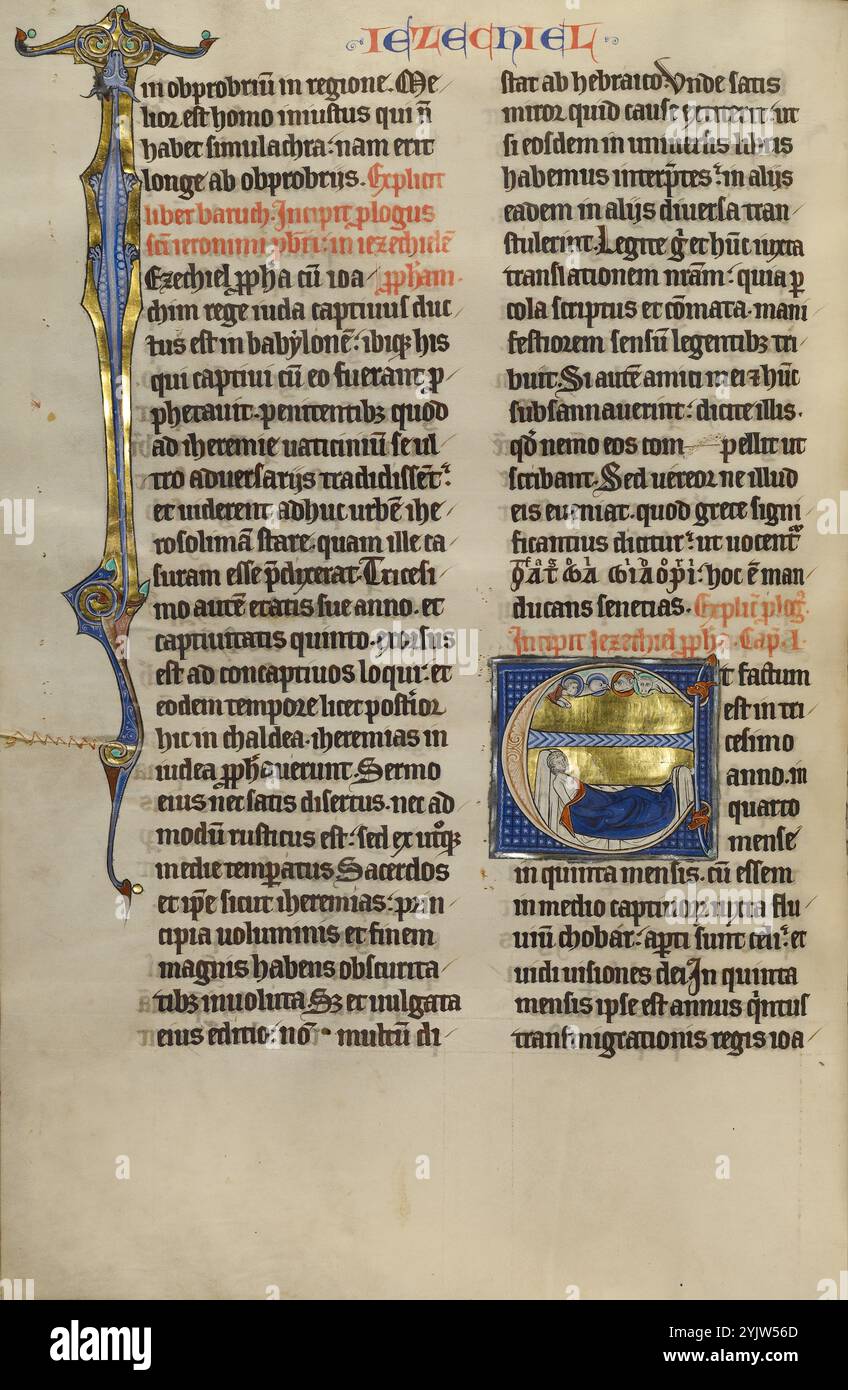 IEZECHIEL
in obprobriū in regione. Me
lior est homo iniustus qui n̄
habet simulachra: nam erit
longe ab obprobrijs. Explicit
liber baruch. Incipit p̄logus
sc̄i ieronimi p̄bri: in iezechielē
Ezechiel pp̄ha cū ioa pp̄ham.
chim rege iuda captiuus duc
tus est in babylonē: ibiq; his
qui captiui cū eo fuerant p̄
phetauit. penitentibꝫ quod
ad iheremie uaticiniū se ul
tro aduersarijs tradidissēt:
et uiderent adhuc urbē ihe
rosolimā stare. quam ille ca
suram esse p̄dixerat. Tricesi
mo autē etatis sue anno. et
captiuitatis quinto. exorsus
est ad concaptiuos loqui: et
eodem tempore licet post'ior
hic in chaldea. iheremias in
iudea pp̄hauerunt. Sermo
eius nec satis disertus. nec ad
modū rusticus est: sed ex utͦq;
medie temp̄atus Sacerdos
et ip̄e sicut iheremias: prin
cipia uoluminis et finem
magnis habens obscurita
tibꝫ inuoluta. Sꝫ et uulgata
eius editio: nō multū di
stat ab hebraico. Vnde satis
miror quid cause extiterit: ut
si eosdem in uniuersis libris
habemus interp̄tes: in alijs
eadem in alijs diuersa tran
stulerint. Legite g̊ et hūc iuxta
translationem nr̄am: quia p̄
cola scriptus et cōmata. mani
festiorem sensū legentibꝫ tri
buit. Si autē amici mei ⁊ hūc
subsannauerint: dicite illis.
qd̄ nemo eos com pellit ut
scribant. Sed uereor ne illud
eis eueniat. quod grece signi
ficantius dicitur: ut uocent
hoc ē man
ducans senecias. Explic̄ p̄log̊.
Incipit Iezechiel pp̄ha. Cap. I.
Et factum
est in tri
cesimo
anno. in
quarto
mense
in quinta mensis. cū essem
in medio captiuor. iuxta flu
uiū chobar: ap̄ti sunt celi: et
uidi uisiones dei. In quinta
mensis ipse est annus q̊ntus
transmigrationis regis ioa
alamy
Image ID: 2YJW56D
www.alamy.com